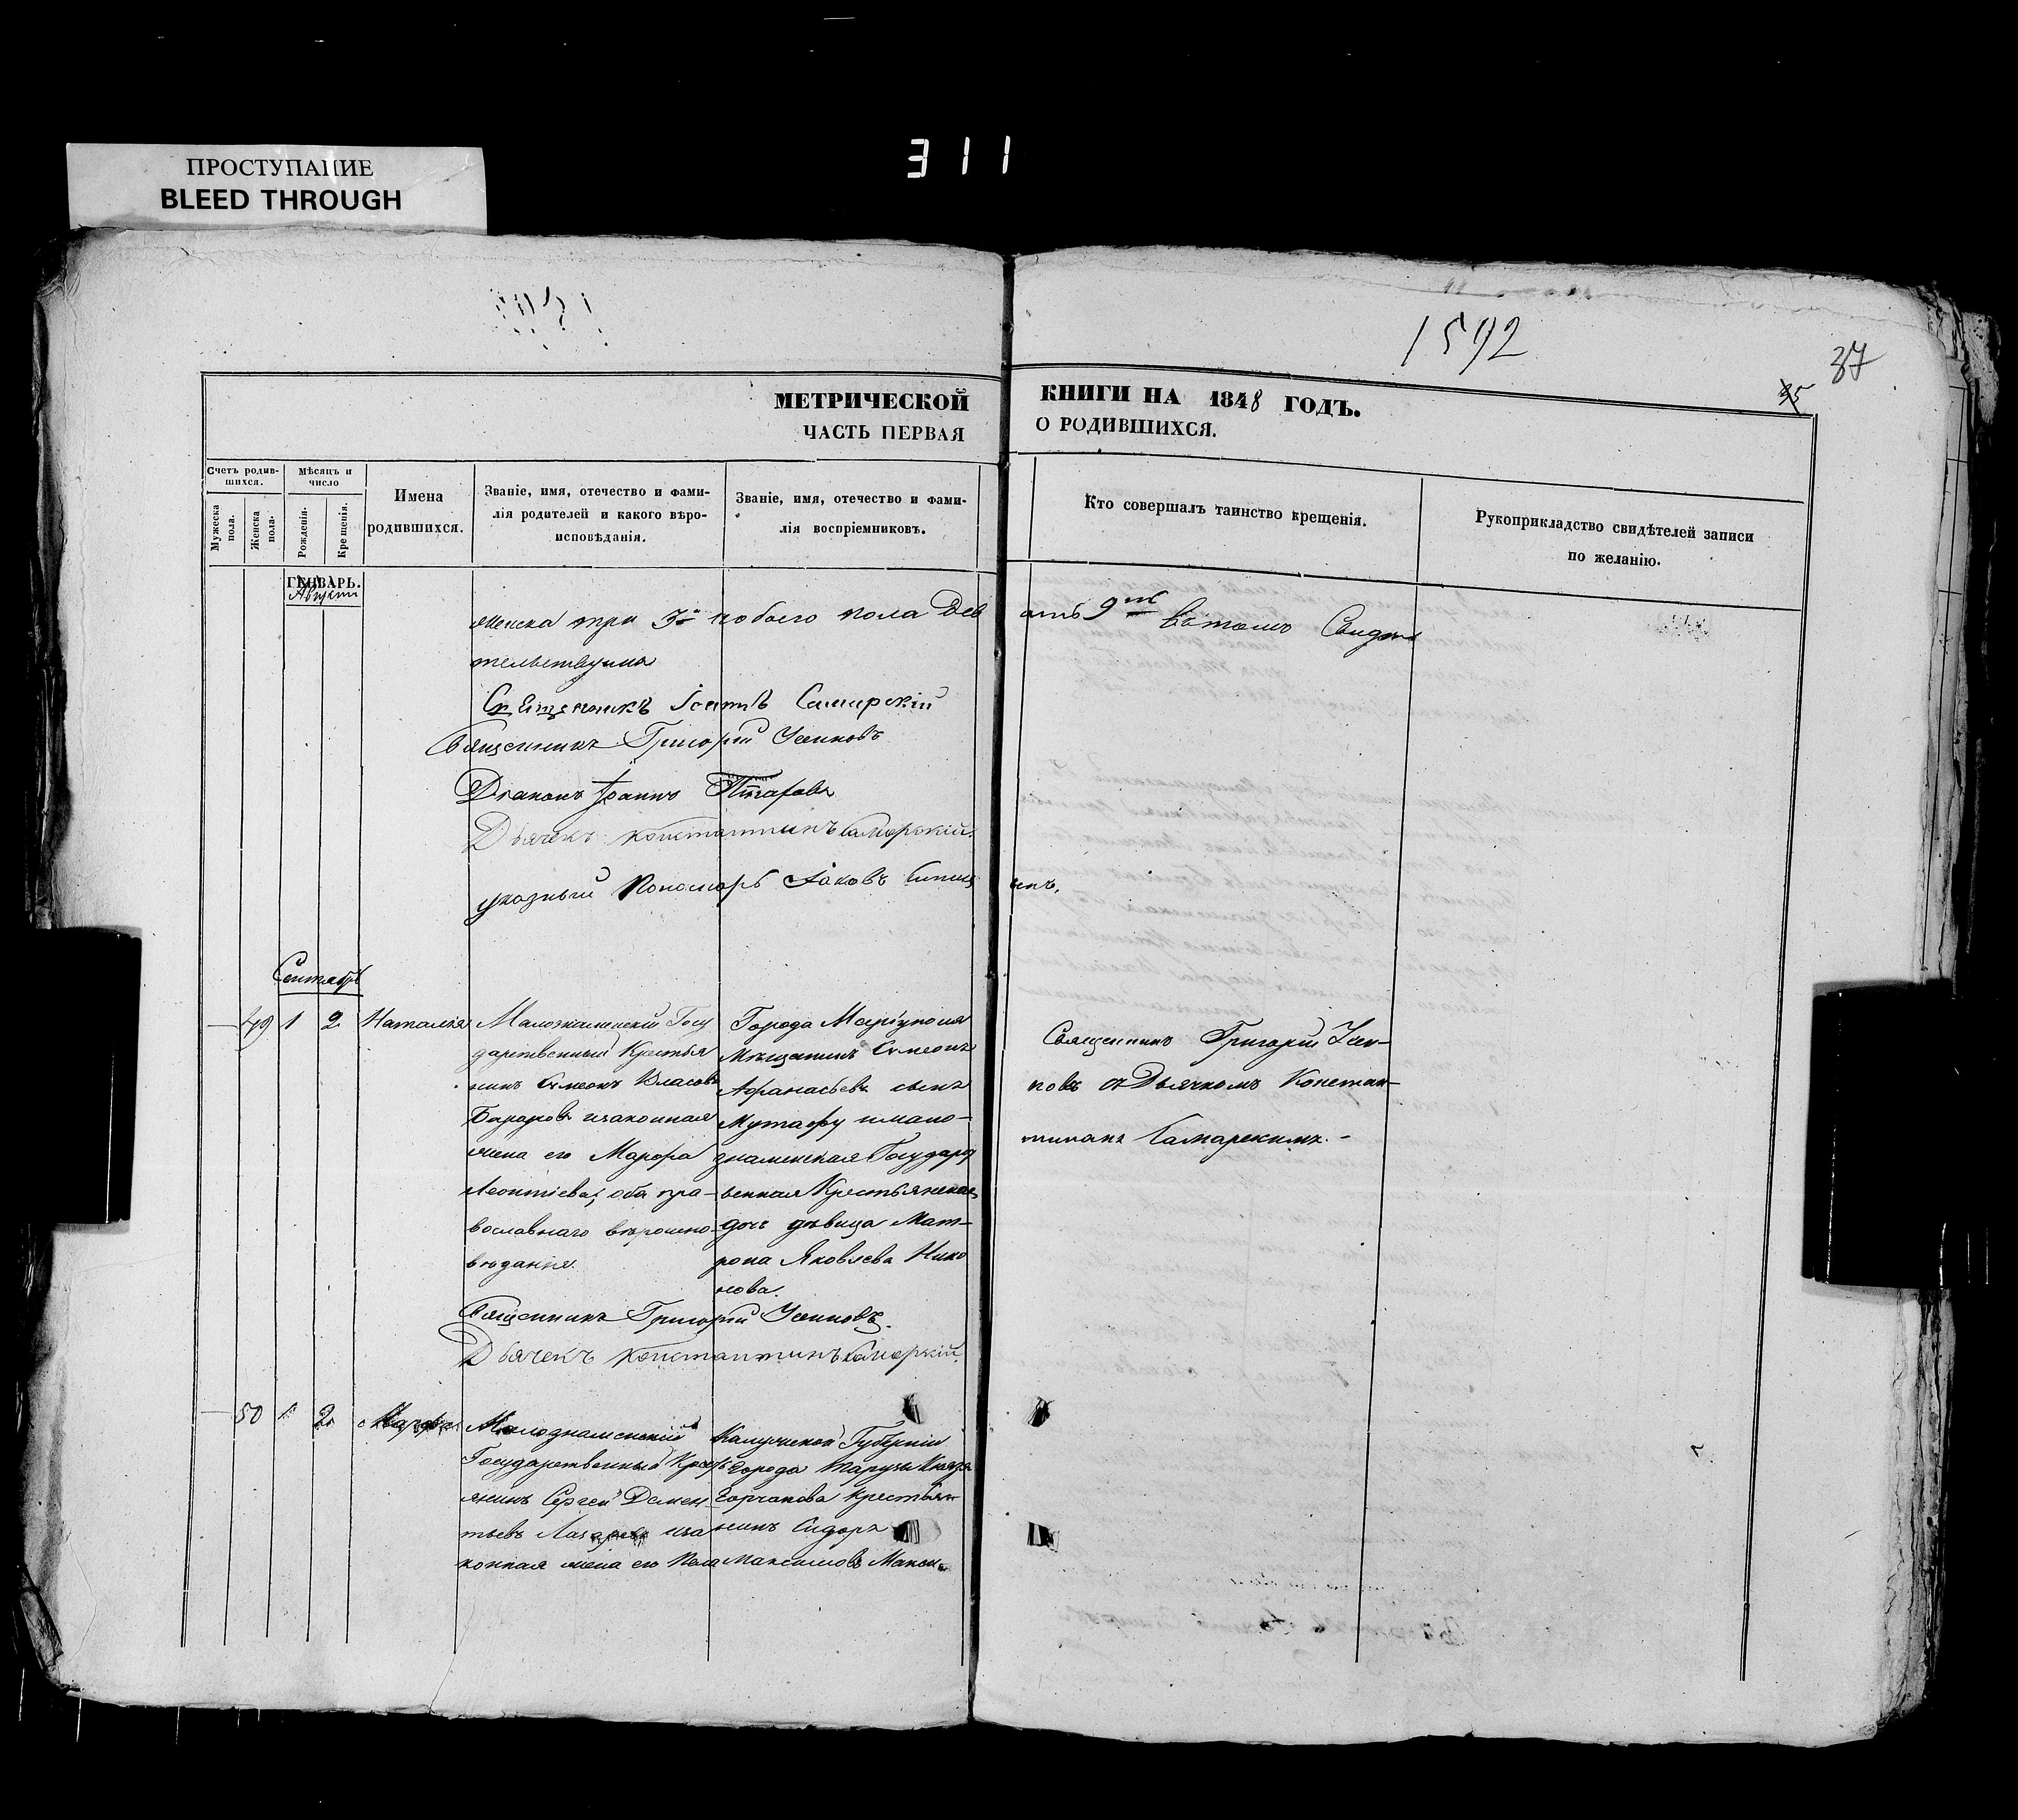 311
ПРОСТУПАНИЕ
BLEED THROUGH
1592
37
35
МЕТРИЧЕСКОЙ КНИГИ НА 1848 ГОДЪ.
ЧАСТЬ ПЕРВАЯ О РОДИВШИХСЯ.
Счетъ родив-
шихся.
Мужеска пола.
Женска пола.
Мѣсяцъ и
число
Рожденія.
Крещенія.
Имена
родившихся.
Званіе, имя, отечество и фами-
лія родителей и какого вѣро-
исповѣданія.
Званіе, имя, отечество и фами-
лія воспріемниковъ.
Кто совершалъ таинство крещенія.
Рукоприкладство свидѣтелей записи
по желанію.
ГЕНВАРЬ.
Августъ
женска три 3 и обоего пола девять 9ть въ томъ Свидѣ
тельствуемъ
Священникъ
Священникъ Григорій Усиковъ
Діаконъ Іоаннъ
Дьячекъ Константинъ Самарскій
указный Пономарь Іаковъ
Сентябрь
49 1 2 Наталія
Малознаменскій Госу
дарственный Крестья
нинъ Симеонъ Власовъ
изаконная
жена его Марфа
Леонтіева, оба пра-
вославнаго вѣроиспо-
вѣданія.
Города Маріуполя
Мѣщанинъ Симеонъ
Афанасьевъ сынъ
и мало-
знаменская Государ
венная Крестьянская
дочь дѣвица Мат-
рона Яковлева Нико
нова.
Священникъ Григорій Уси-
ковъ съ Дьячкомъ Констан-
тиномъ Самарскимъ.-
Священникъ Григорій Усиковъ.
Дьячекъ Константинъ Самарскій.
50 1 2 Марфа
Малознаменскій
Государственный Крестья
янинъ Сергей Демен
тьевъ Лазаревъ иза
конная жена его Пела
Калужской Губерніи
города Тарусы Князя
Горчакова Крестья
нинъ Сидоръ
Максимовъ